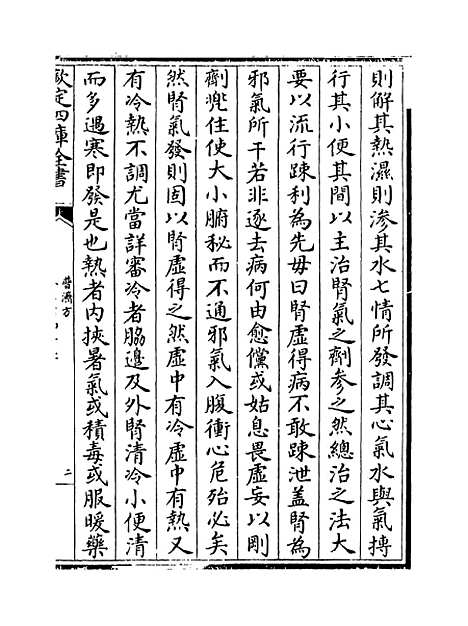 則解其熱濕則滲其水七情所發調其心氣水與氣摶
行其小便其間以主治腎氣之劑參之然總治之法大
要以流行踈利為先毋曰腎虛得病不敢踈泄盖腎為
邪氣所干若非逐去病何由愈儻或姑息畏虛妄以剛
劑兠住使大小腑秘而不通邪氣入腹衝心危殆必矣
然腎氣發則固以腎虛得之然虛中有冷虛中有熱又
有冷熱不調尤當詳審冷者脇邉及外腎清冷小便清
而多遇寒即發是也熱者内挾暑氣或積毒或服暖藥
欽定四庫全書
普濟方
二